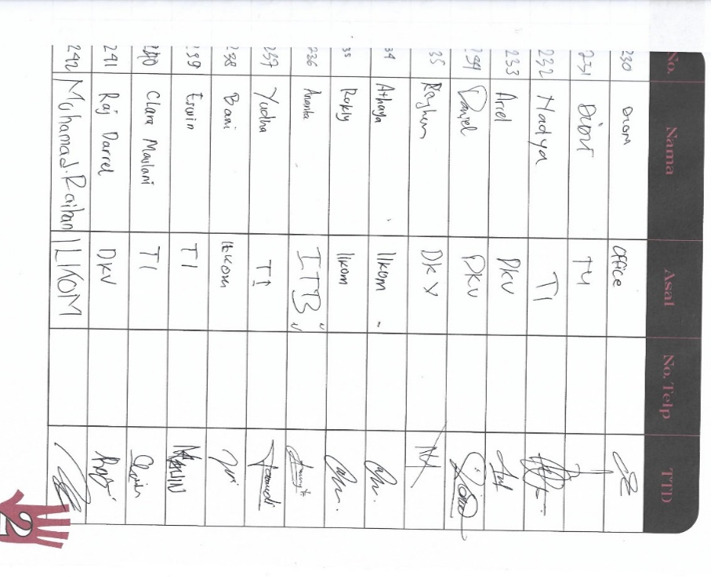 No. Nama Asal No. Telp TTD
230 Dion Office
231 Dion TU
232 Nadya TI
233 Ariel DKV
234 Daniel DKV
35 Reghun DKV
34 Atharya Ilkom
35 Rokly Ilkom
236 Ananta ITB
237 Yudha TI
238 Bani Ilkom
239 Erwin TI ERWIN
240 Clara Maulani TI
241 Raj Darrel DKV
242 Mohamad. Raihan ILKOM
2